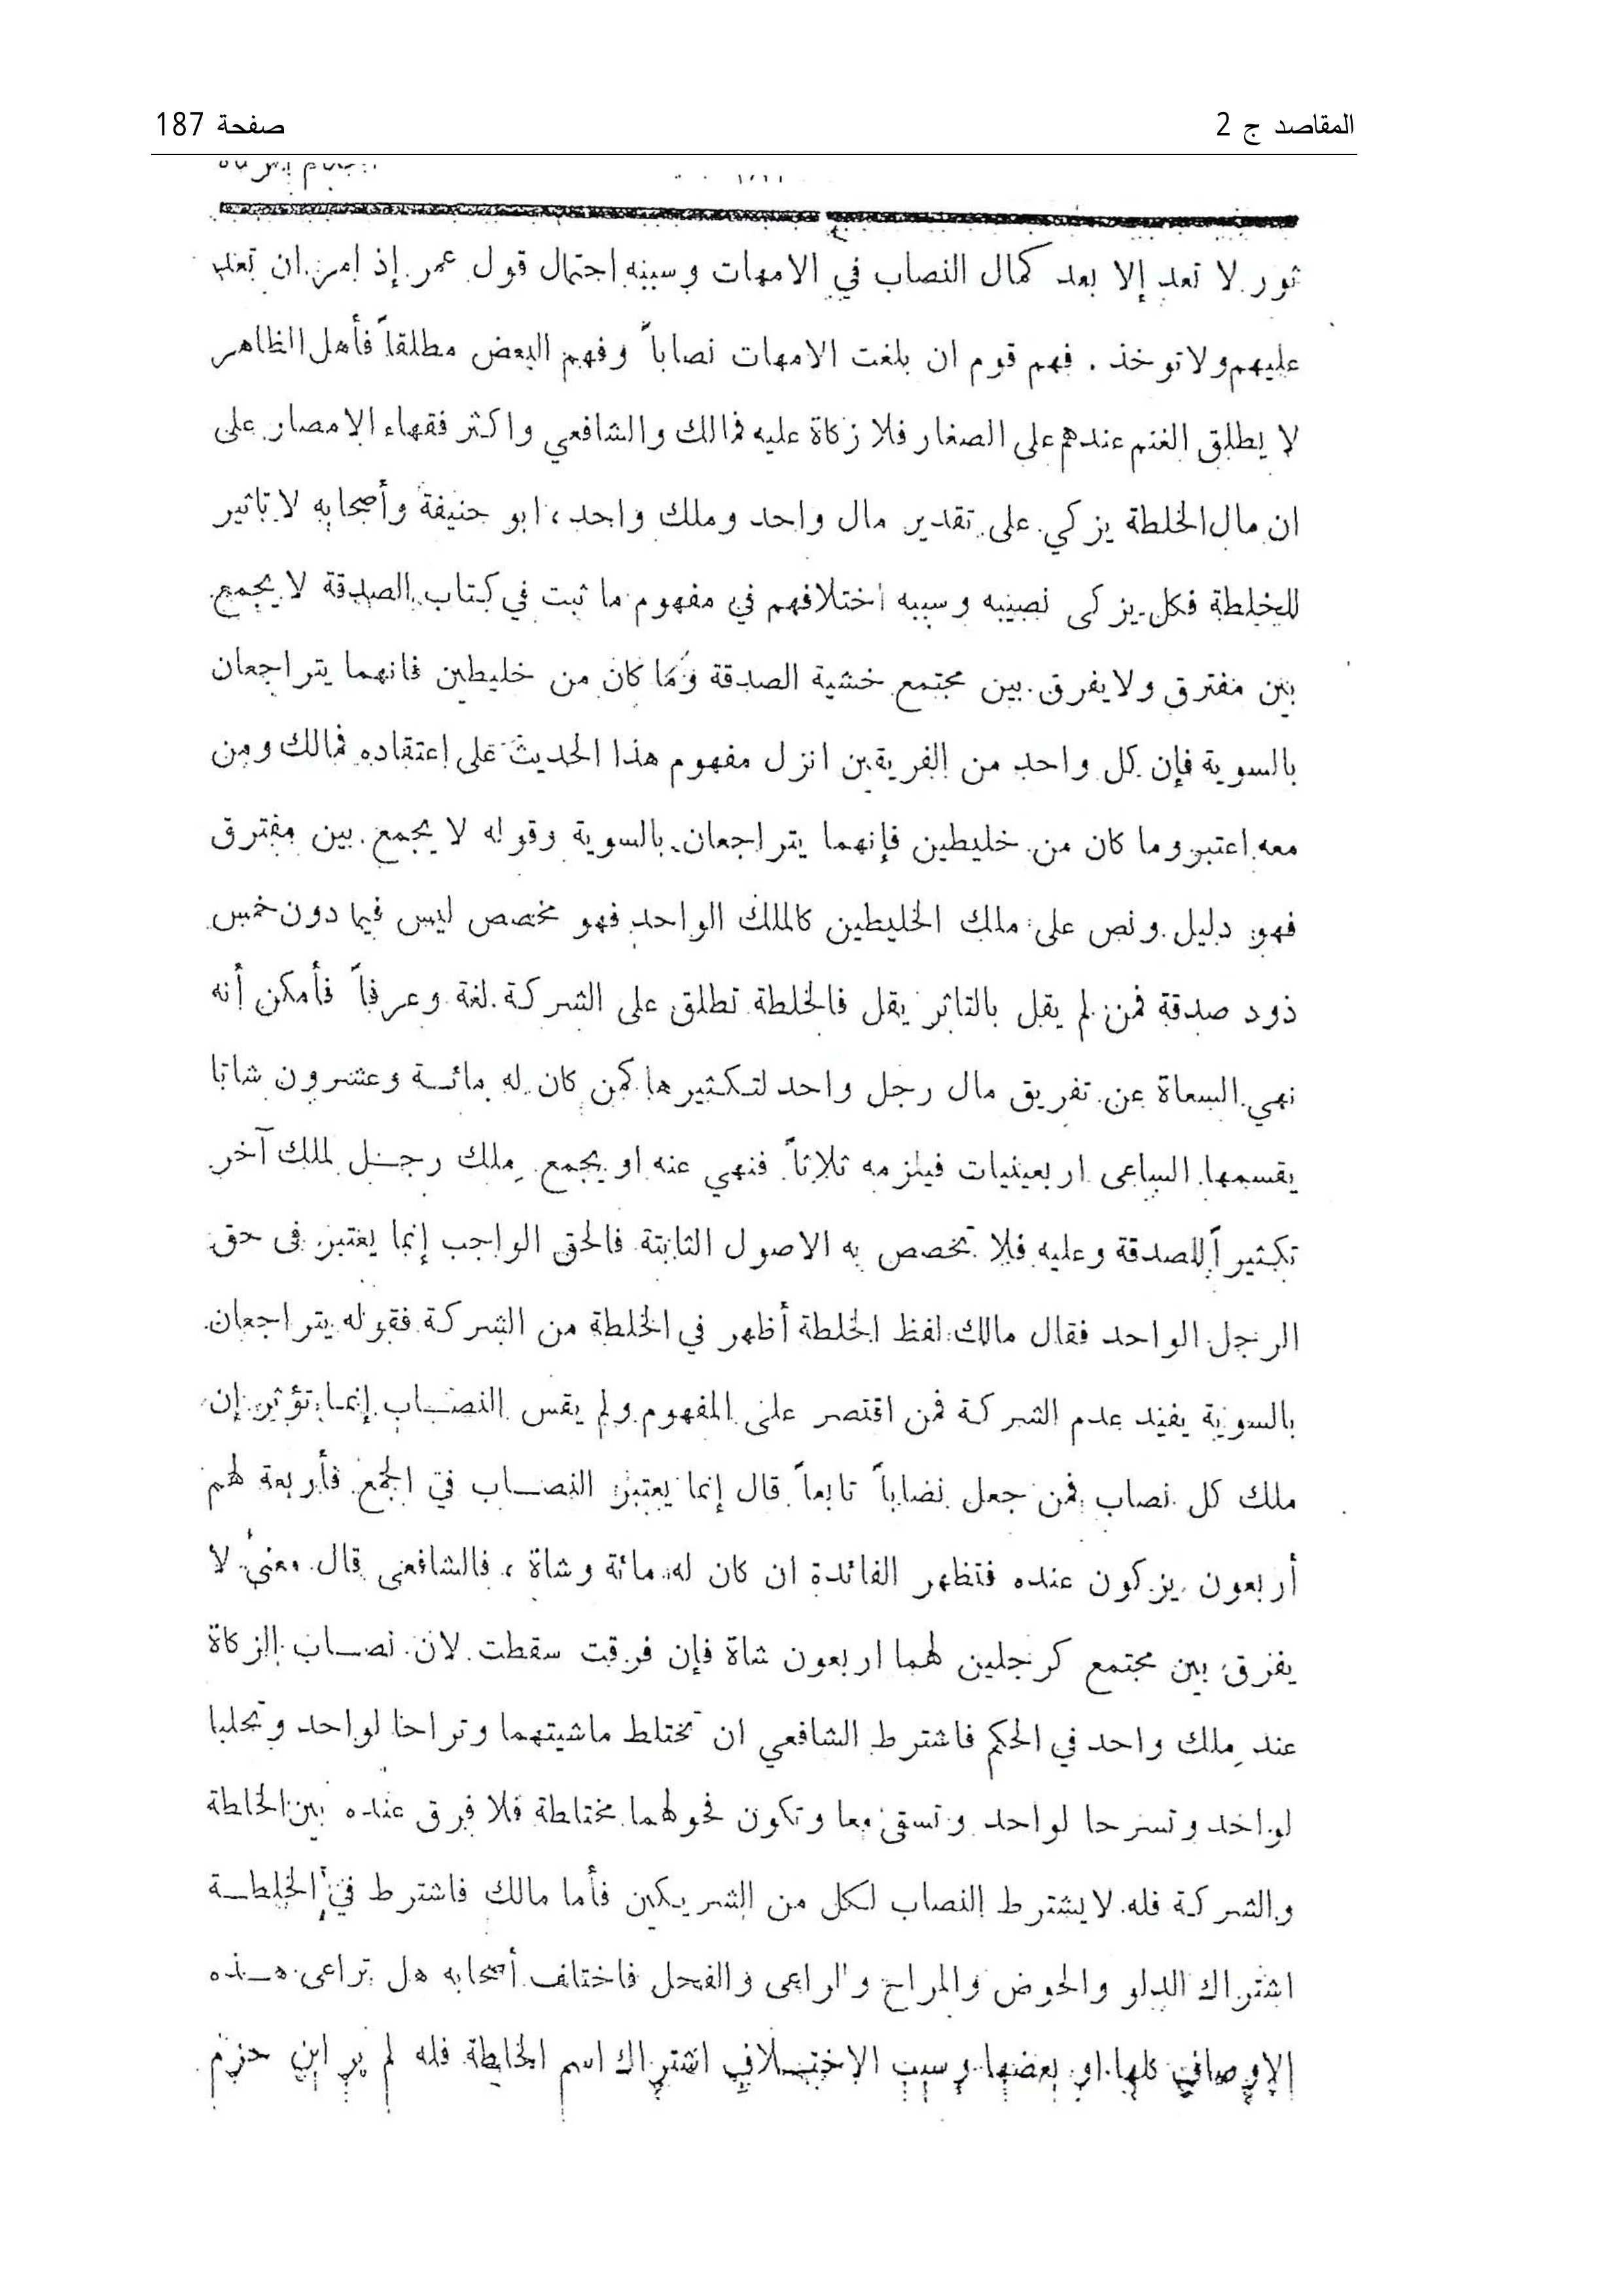 المقاصد ج 2
صفحة 187
ثور لا تعد إلا بعد كمال النصاب في الامهات وسببه احتمال قول عمر إذ امر ان تعد
عليهم ولا توخذ . فهم قوم ان بلغت الامهات نصاباً وفهم البعض مطلقاً فأهل الظاهر
لا يطلق الغنم عندهم على الصغار فلا زكاة عليه فمالك والشافعي واكثر فقهاء الامصار على
ان مال الخلطة يزكي على تقدير مال واحد وملك واحد، ابو حنيفة وأصحابه لا تاثير
للخلطة فكل يزكى نصيبه وسببه اختلافهم في مفهوم ما ثبت في كتاب الصدقة لا يجمع
بين مفترق ولا يفرق بين مجتمع خشية الصدقة وما كان من خليطين فانهما يتراجعان
بالسوية فإن كل واحد من الفريقين انزل مفهوم هذا الحديث على إعتقاده فمالك ومن
معه اعتبر وما كان من خليطين فإنهما يتراجعان بالسوية وقوله لا يجمع بين مفترق
فهو دليل ونص على ملك الخليطين كالملك الواحد فهو مخصص ليس فيما دون خمس
ذود صدقة فمن لم يقل بالتاثر يقل فالخلطة تطلق على الشركة لغة وعرفاً فأمكن أنه
نهي السعاة عن تفريق مال رجل واحد لتكثيرها كمن كان له مائة وعشرون شاتا
يقسمها الساعى اربعينيات فيلزمه ثلاثاً فنهي عنه او يجمع ملك رجل لملك آخر
تكثيراً للصدقة وعليه فلا تخصص به الاصول الثابتة فالحق الواجب إنما يعتبر فى حق
الرجل الواحد فقال مالك لفظ الخلطة أظهر في الخلطة من الشركة فقوله يتراجعان
بالسوية يفيد عدم الشركة فمن اقتصر على المفهوم ولم يقس النصاب إنما تؤثر إن
ملك كل نصاب فمن جعل نصاباً تابعاً قال إنما يعتبر النصاب في الجمع فأربعة لهم
أربعون يزكون عنده فتظهر الفائدة ان كان له مائة وشاة ، فالشافعى قال معنى لا
يفرق بين مجتمع كرجلين لهما اربعون شاة فإن فرقت سقطت لان نصاب الزكاة
عند ملك واحد في الحكم فاشترط الشافعي ان تختلط ماشيتهما وتراحا لواحد وتحلبا
لواحد وتسرحا لواحد وتسقى معا وتكون فحولهما مختلطة فلا فرق عنده بين الخلطة
والشركة فله لا يشترط النصاب لكل من الشريكين فأما مالك فاشترط في الخلطة
اشتراك الدلو والحوض والمراح والراعى والفحل فاختلف أصحابه هل تراعى هذه
الاوصاف كلها او بعضها وسبب الاختلاف اشتراك اسم الخلطة فله لم ير ابن حزم